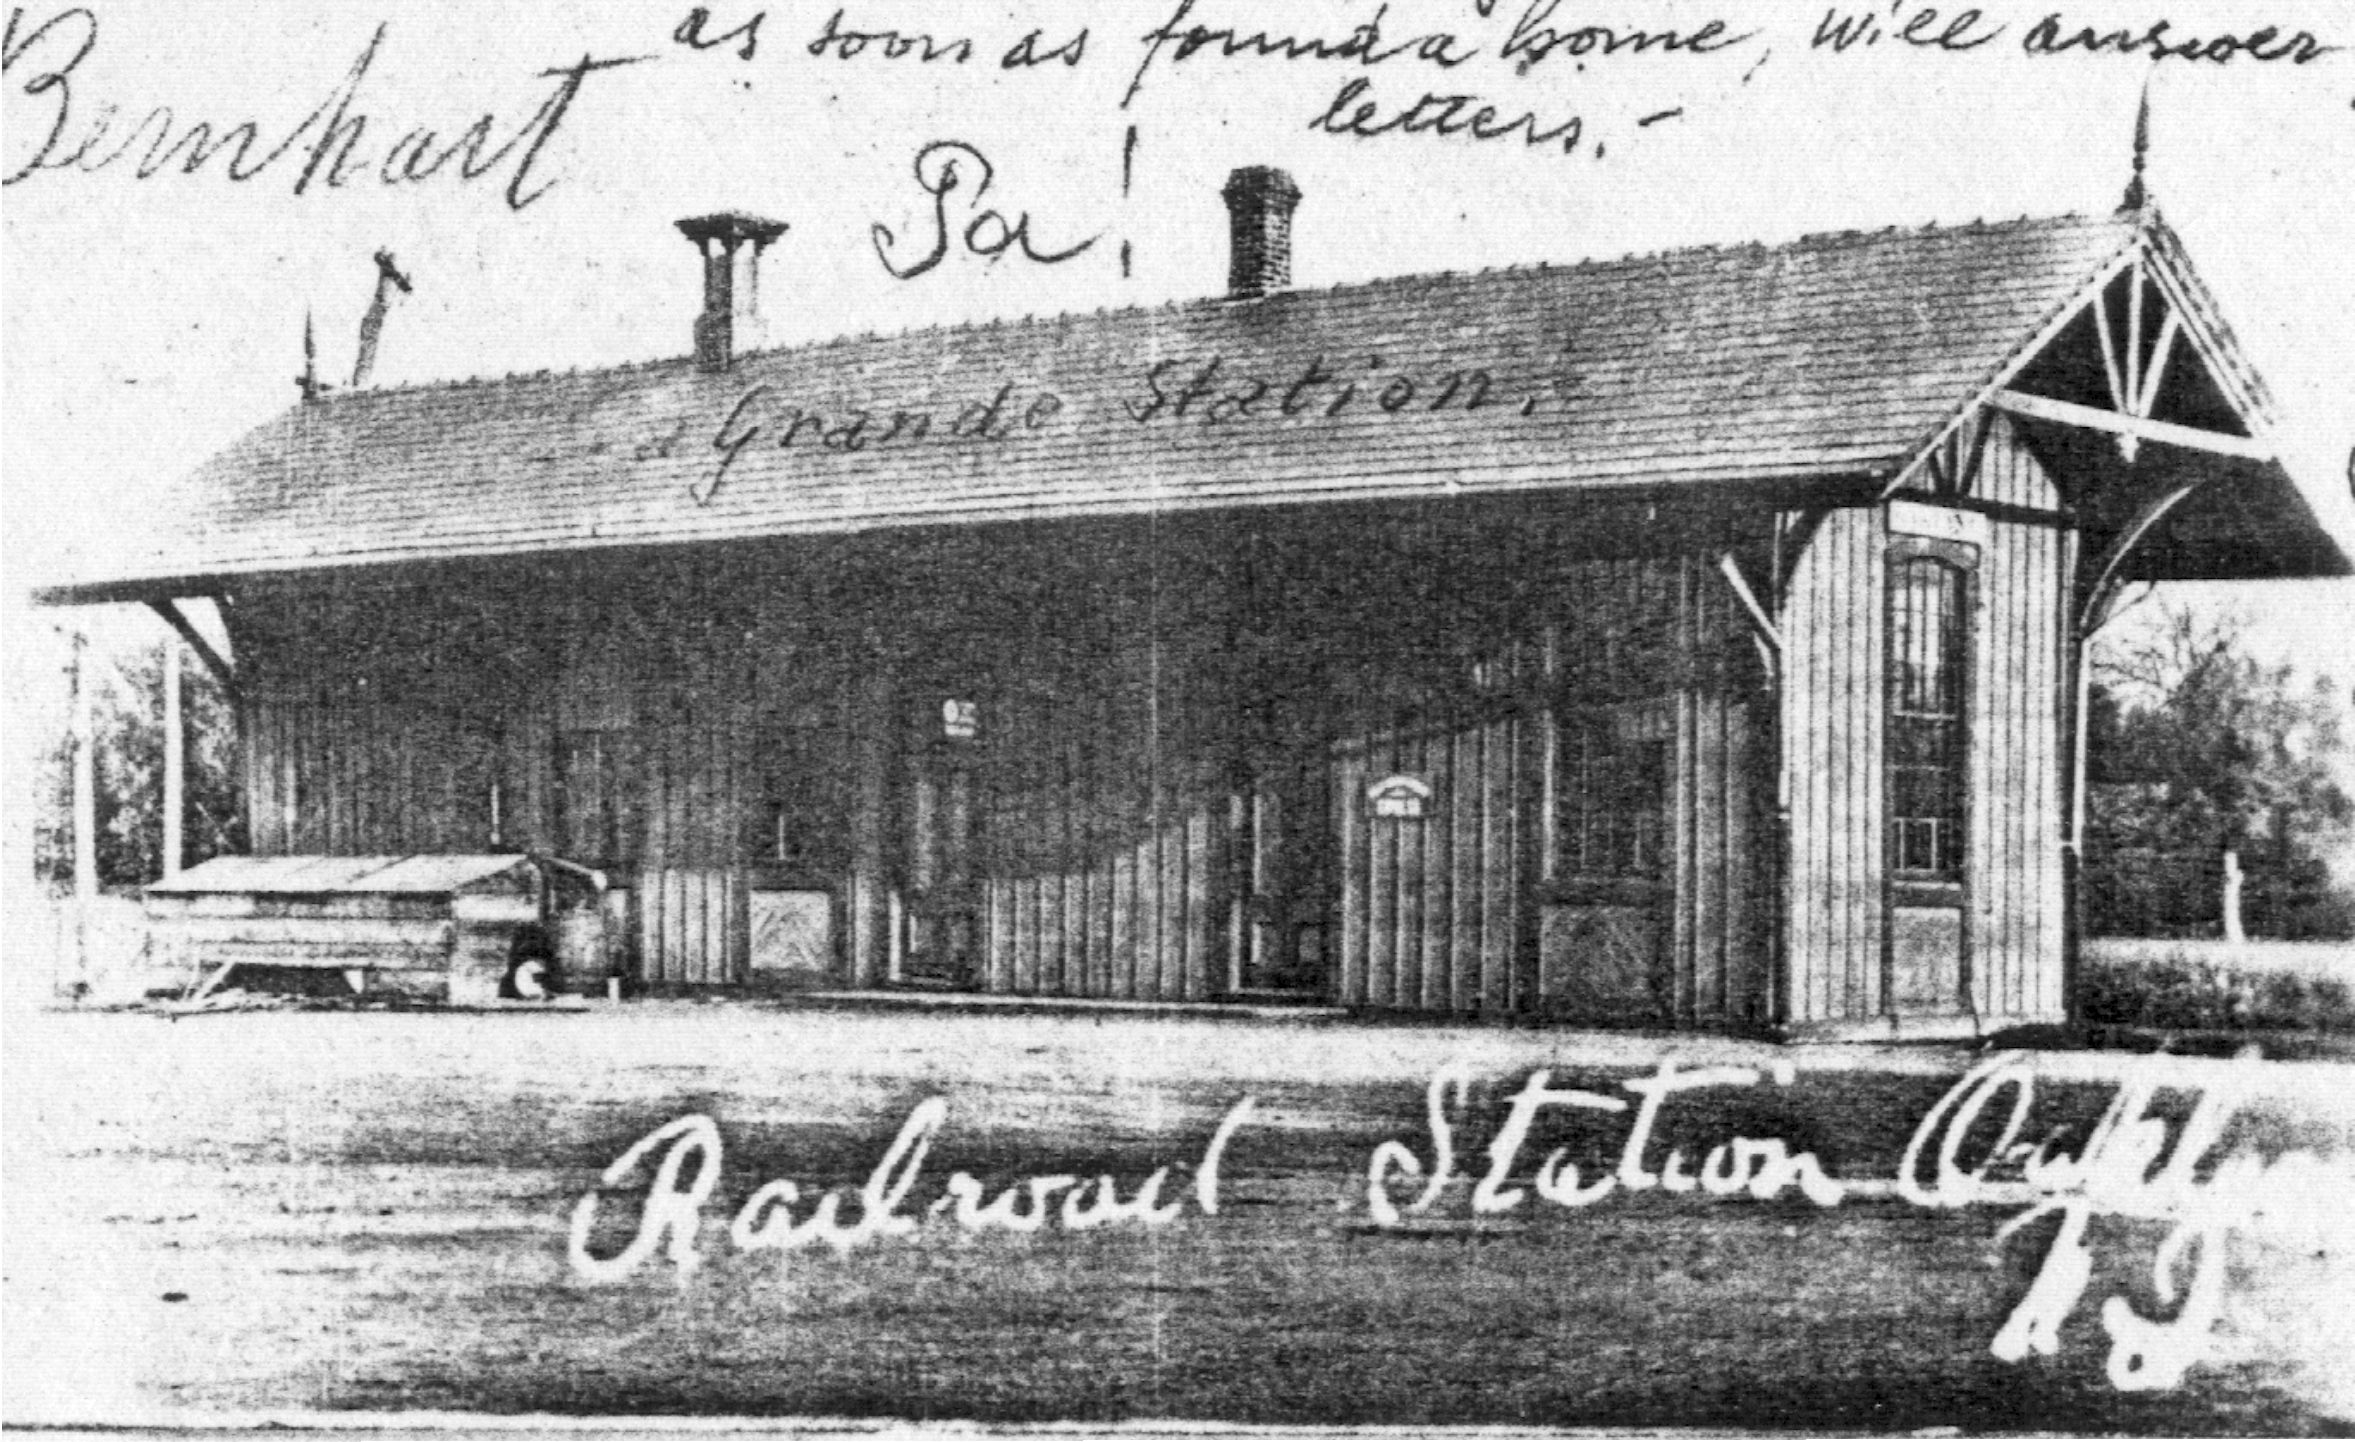 as soon as found a home, will answer
letters.-
Bernhart
Pa!
a Grande Station.
Railroad Station Oaklyn
N J